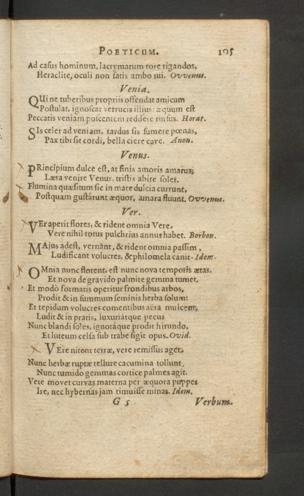 POETICUM. 105
Ad casus hominum, lacrymarum rore rigandos,
Heraclite, oculi non satis ambo tui. Owenus.
Venia.
QUi ne tuberibus propriis offendat amicum
Postulat, ignoscat verrucis illius: æquum est
Peccatis veniam poscentem reddere rursus. Horat.
SIs celer ad veniam, tardus sis sumere pœnas,
Pax tibi sit cordi, bella ciere cave. Anon.
Venus.
PRincipium dulce est, at finis amoris amarus;
Læta venire Venus, tristis abire solet.
Flumina quæsitum sic in mare dulcia currunt,
Postquam gustârunt æquor, amara fluunt. Owenus.
Ver.
VEr aperit flores, & rident omnia Vere.
Vere nihil totus pulchrius annus habet. Borbon.
MAjus adest, vernānt, & rident omnia passim,
Ludificant volucres, & philomela canit. Idem.
OMnia nunc florent, est nunc nova temporis ætas.
Et nova de gravido palmite gemma tumet.
Et modò formatis operitur frondibus arbos,
Prodit & in summum seminis herba solum:
Et tepidum volucres concentibus aëra mulcent,
Ludit & in pratis, luxuriátque pecus
Nunc blandi soles, ignotáque prodit hirundo,
Et luteum celsa sub trabe figit opus. Ovid.
VEre nitent terræ, vere remissus ager.
Nunc herbæ ruptæ tellure cacumina tollunt.
Nunc tumido gemmas cortice palmes agit.
Vere movet curvas materna per æquora puppes
Ire, nec hybernas jam timuisse minas. Idem.
G 5 Verbum.